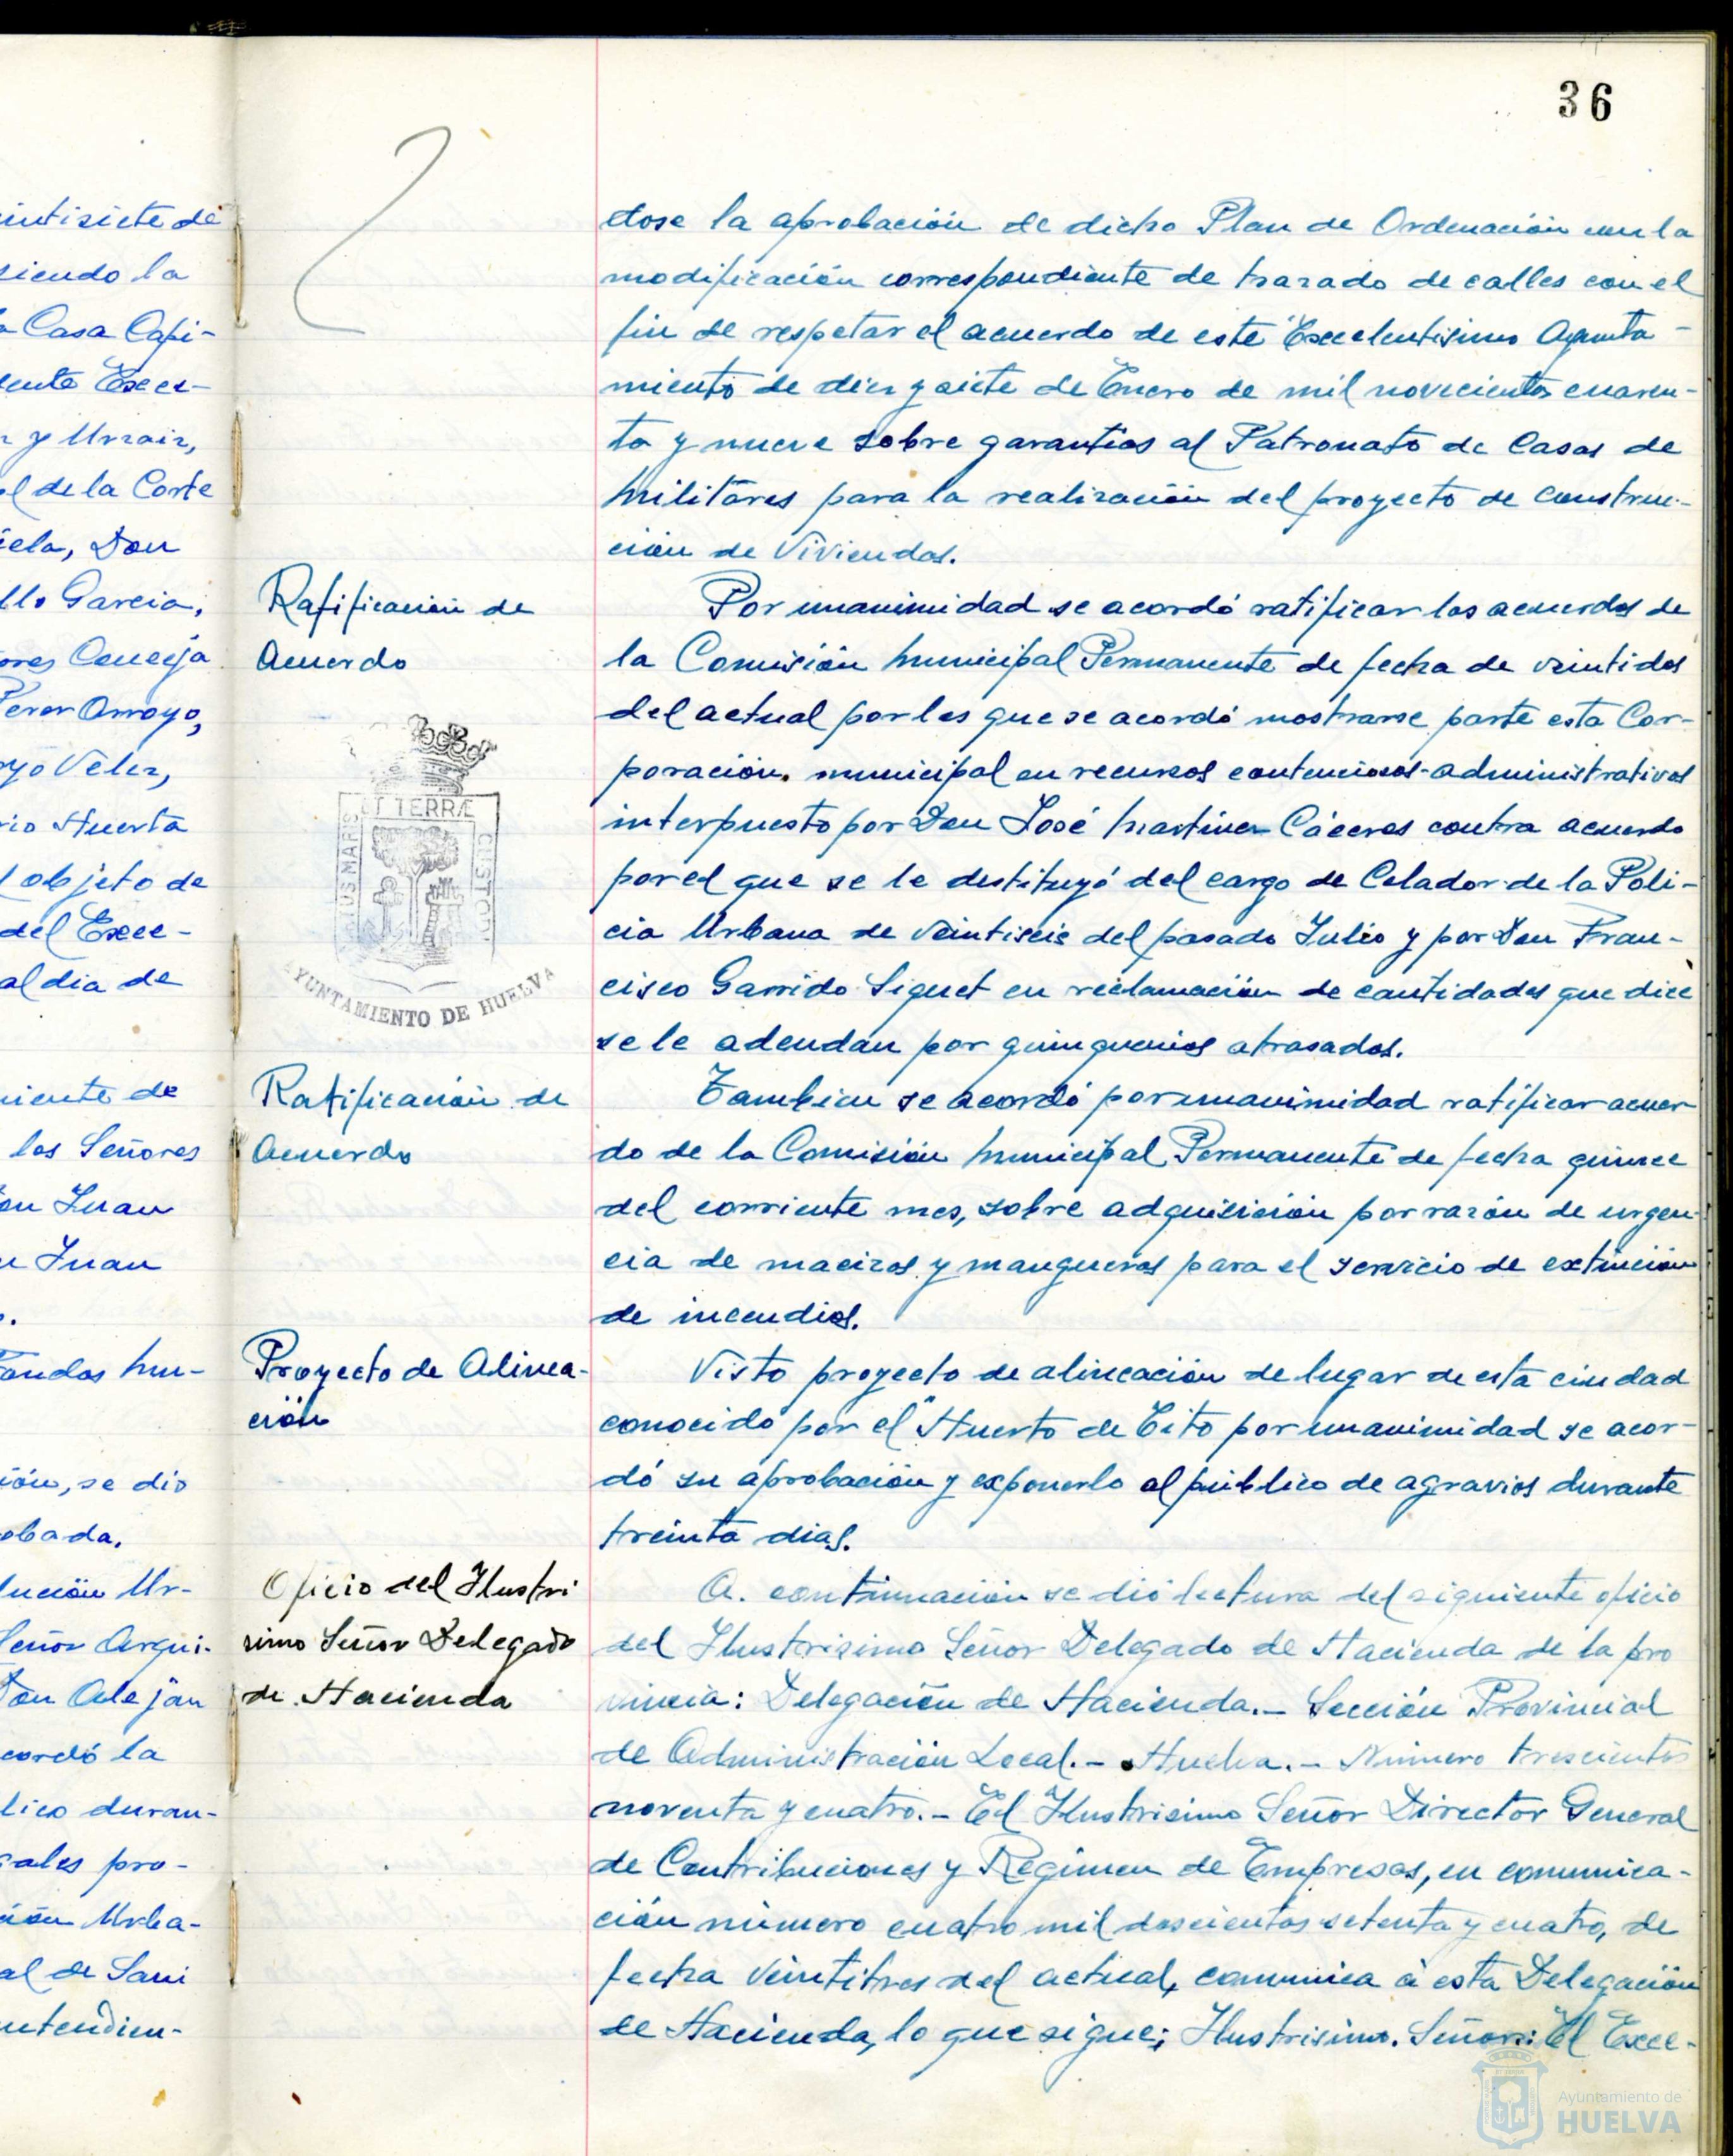 36
intisiete de
siendo la
a Casa Capi-
dente Exce-
n y Urzaiz,
al de la Corte
iela, Don
llo Garcia,
ores Conceja
Perez Arroyo,
yo Vélez,
rio Huerta
l objeto de
del Exce-
al dia de
niente de
los Señores
on Juan
n Juan
andas Mu-
ión, se dio
obada.
lución Ur-
Señor Arqui-
Don Alejan
cordó la
lico duran-
gales pro-
ión Urba-
al de Sani
ntendien-
dose la aprobación de dicho Plan de Ordenación con la
modificación correspondiente de trazado de calles con el
fin de respetar el acuerdo de este Excelentisimo Ayunta-
miento de diez y siete de Enero de mil novecientos cuaren-
ta y nueve sobre garantias al Patronato de Casas de
Militares para la realización del proyecto de construc-
ción de Viviendas.
Ratificación de
Acuerdo
Por unanimidad se acordó ratificar los acuerdos de
la Comisión Municipal Permanente de fecha de veintidos
del actual por los que se acordó mostrarse parte esta Cor-
poración municipal en recursos contenciosos-administrativos
interpuesto por Don José Martinez Cáceres contra acuerdo
por el que se le destituyó del cargo de Celador de la Poli-
cia Urbana de veintiseis del pasado Julio y por Don Fran-
cisco Garrido Siguet en reclamación de cantidades que dice
se le adeudan por quinquenios atrasados.
ET TERRÆ
CUSTODI
AYUNTAMIENTO DE HUELVA
Ratificación de
Acuerdo
Tambien se acordó por unanimidad ratificar acuer-
do de la Comisión Municipal Permanente de fecha quince
del corriente mes, sobre adquisición por razón de urgen-
cia de macizos y mangueras para el servicio de extinción
de incendios.
Proyecto de Alinea-
ción
Visto proyecto de alineación de lugar de esta ciudad
conocido por el "Huerto de Tito por unanimidad se acor-
dó su aprobación y exponerlo al público de agravios durante
treinta dias.
Oficio del Ilustri
simo Señor Delegado
de Hacienda
A. continuación se dió lectura del siguiente oficio
del Ilustrisimo Señor Delegado de Hacienda de la pro
vincia: Delegación de Hacienda.- Sección Provincial
de Administración Local.- Huelva.- Número trescientos
noventa y cuatro.- El Ilustrisimo Señor Director General
de Contribuciones y Régimen de Empresas, en comunica-
ción número cuatro mil doscientos setenta y cuatro, de
fecha veintitres del actual, comunica á esta Delegación
de Hacienda, lo que sigue; Ilustrisimo. Señor: El Exce-
Ayuntamiento de
HUELVA